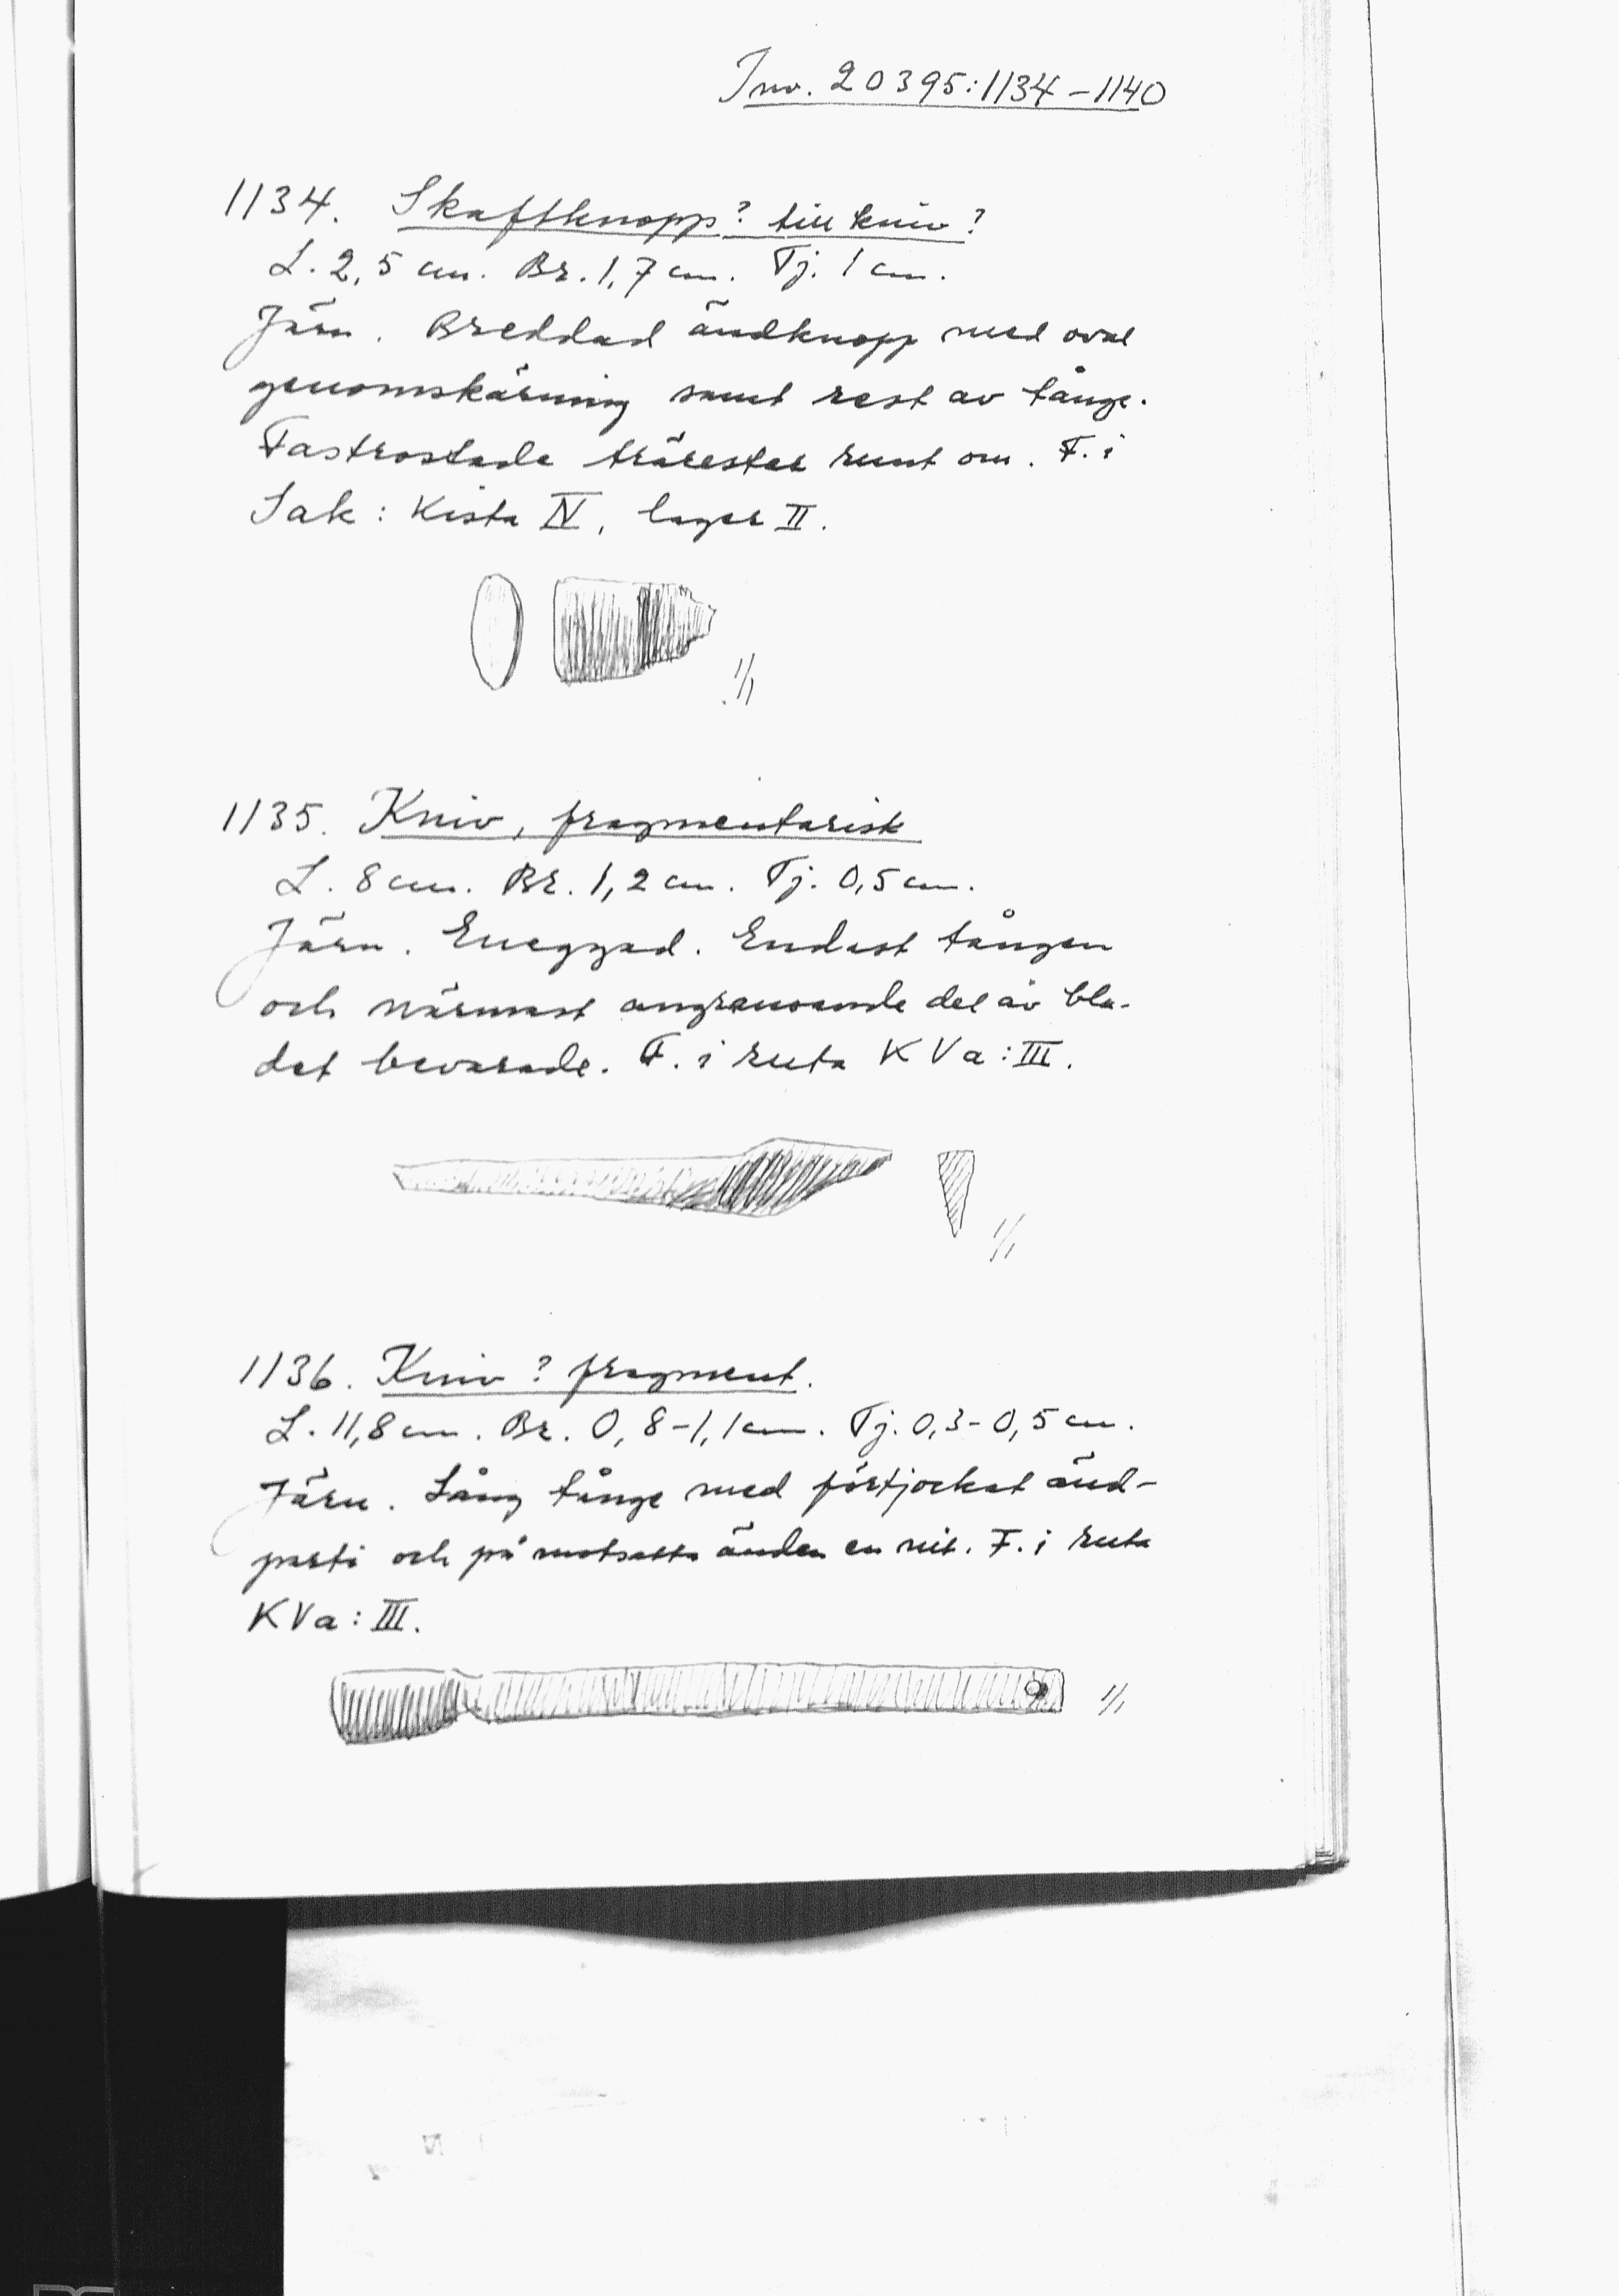 Inv. 20395:1134-1140
1134. Skaftknopp? till kniv?
L. 2,5 cm. Br. 1,7 cm. Tj. 1 cm.
Järn. Breddad ändknopp med oval
genomskärning samt rest av tånge.
Fastrostade trärester runt om. F. i
Sak: Kista IV, lager II.
1/1
1135. Kniv, fragmentarisk
L. 8 cm. Br. 1,2 cm. Tj. 0,5 cm.
Järn. Eneggad. Endast tången
och närmast angränsande del av bla-
det bevarade. F. i ruta K Va: III.
1/1
1136. Kniv? fragment.
L. 11,8 cm. Br. 0,8-1,1 cm. Tj. 0,3-0,5 cm.
Järn. Lång tånge med förtjockat änd-
parti och på motsatta änden en nit. F. i ruta
K Va: III.
1/1